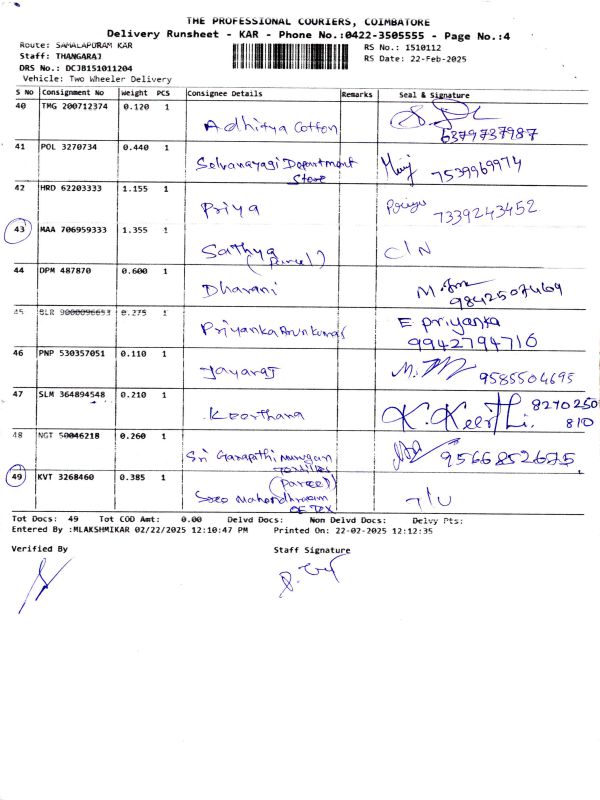 THE PROFESSIONAL COURIERS, COIMBATORE
Delivery Runsheet - KAR - Phone No.:0422-3505555 - Page No.:4
Route: SAMALAPURAM KAR RS No.: I510112
Staff: THANGARAJ RS Date: 22-Feb-2025
DRS No.: DCJB151011204
Vehicle: Two Wheeler Delivery
S No Consignment No Weight PCS Consignee Details Remarks Seal & Signature
40 TMG 200712374 0.120 1
Adhitya Cotton 6379737987
41 POL 3270734 0.440 1
Selvanayagi Department
Store 7539969974
42 HRD 62203333 1.155 1
Priya Priya 7339243452
43 MAA 706959333 1.355 1
Sathya C/N
(parcel)
44 DPM 487870 0.600 1
Dharani 9842507469
45 BLR 9000096653 0.275 1
E Priyanka
9942794716
46 PNP 530357051 0.110 1
Jayaraj 9585504695
47 SLM 364894548 0.210 1
Keerthana K. Keerthi. 8270250
810
48 NGT 50046218 0.260 1
Sri Ganapathi murugan
9566852675
49 KVT 3268460 0.385 1
(parcel)
T/U
Tot Docs: 49 Tot COD Amt: 0.00 Delvd Docs: Non Delvd Docs: Delvy Pts:
Entered By :MLAKSHMIKAR 02/22/2025 12:10:47 PM Printed On: 22-02-2025 12:12:35
Verified By Staff Signature